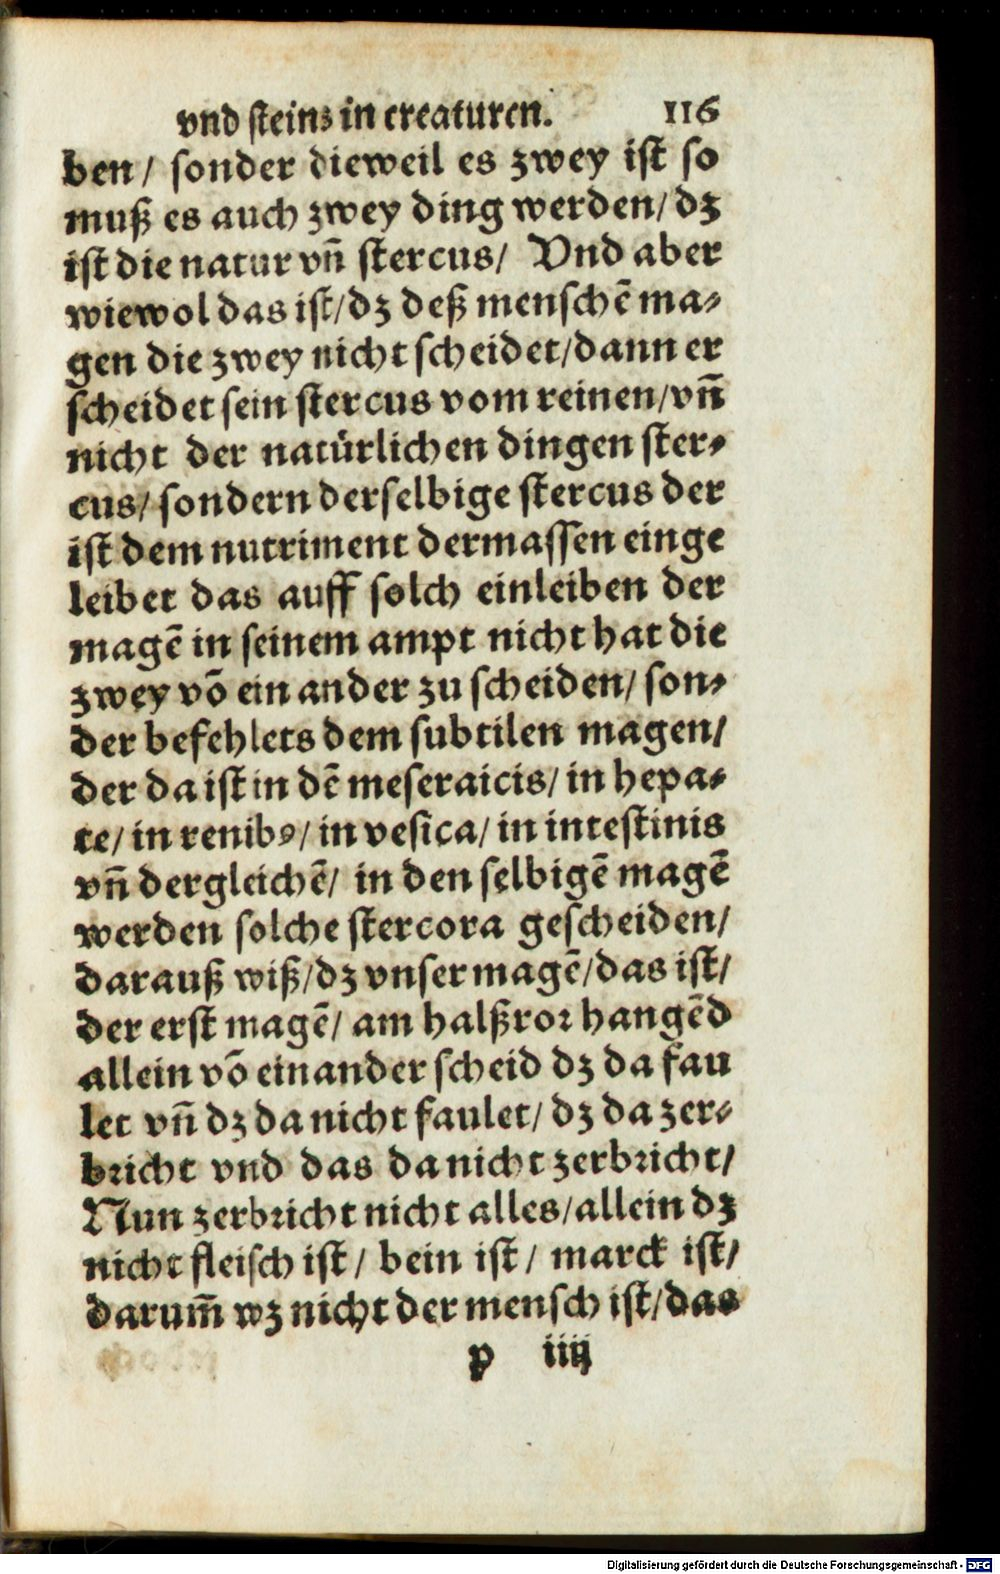 vnd steinꝫ in creaturen. 116
ben/ sonder dieweil es zwey ist so
muß es auch zwey ding werden/ dz
ist die natur vñ stercus/ Vnd aber
wiewol das ist/ dz deß menschē ma⸗
gen die zwey nicht scheidet/ dann er
scheidet sein stercus vom reinen/ vñ
nicht der natürlichen dingen ster⸗
cus/ sondern derselbige stercus der
ist dem nutriment dermassen einge
leibet das auff solch einleiben der
magē in seinem ampt nicht hat die
zwey vō ein ander zu scheiden/ son⸗
der befehlets dem subtilen magen/
der da ist in dē meseraicis/ in hepa⸗
te/ in renibꝰ/ in vesica/ in intestinis
vñ dergleichē/ in den selbigē magē
werden solche stercora gescheiden/
darauß wiß/ dz vnser magē/ das ist/
der erst magē/ am halßror hangēd
allein vō einander scheid dz da fau
let vñ dz da nicht faulet/ dz da zer⸗
bricht vnd das da nicht zerbricht/
Nun zerbricht nicht alles/ allein dz
nicht fleisch ist/ bein ist/ marck ist/
darum̄ wz nicht der mensch ist/ das
p iiij
Digitalisierung gefördert durch die Deutsche Forschungsgemeinschaft - DFG